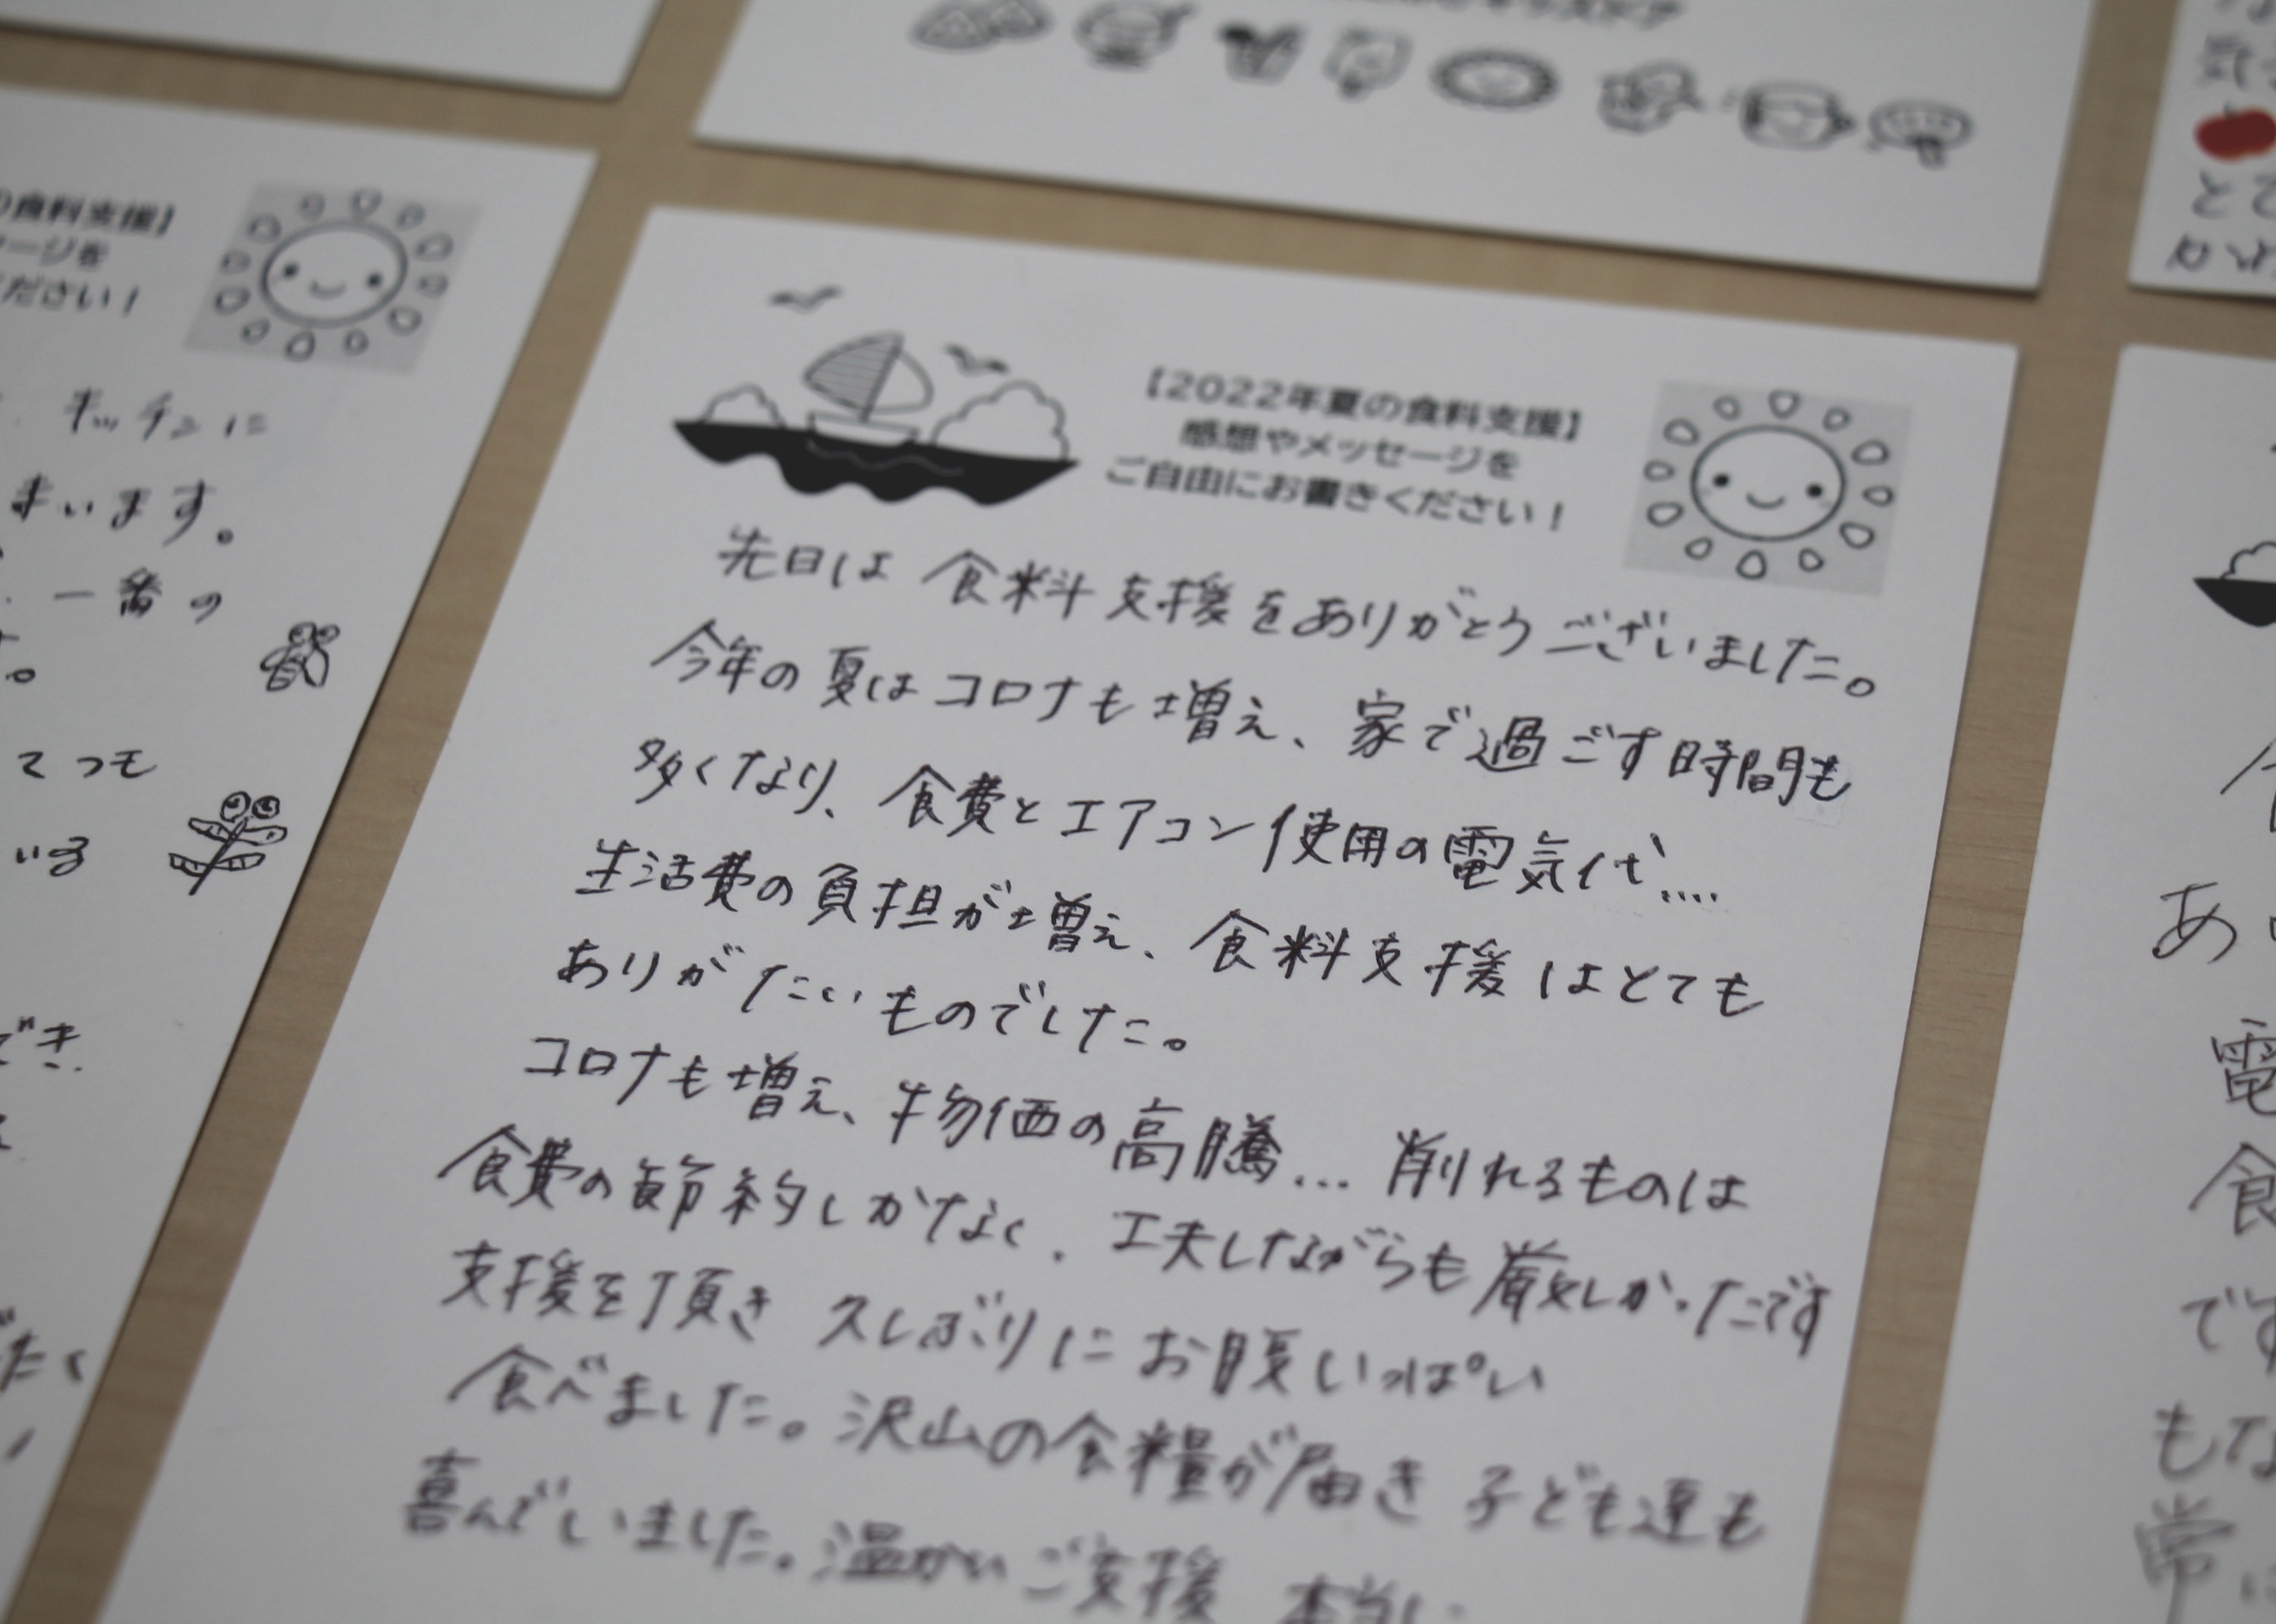 の食料支援】
ージを
ださい！
キッチンに
まいます。
一番の
。
てつも
いる
でき
たく
【2022年夏の食料支援】
感想やメッセージを
ご自由にお書きください！
先日は食料支援をありがとうございました。
今年の夏はコロナも増え、家で過ごす時間も
多くなり、食費とエアコン使用の電気代....
生活費の負担が増え、食料支援はとても
ありがたいものでした。
コロナも増え、物価の高騰... 削れるものは
食費の節約しかなく、工夫しながらも厳しかったです
支援を頂き 久しぶりにお腹いっぱい
食べました。沢山の食糧が届き 子ども達も
喜んでいました。温かいご支援 本当に
とて
かわ
あ
電
食
です
もな
常に